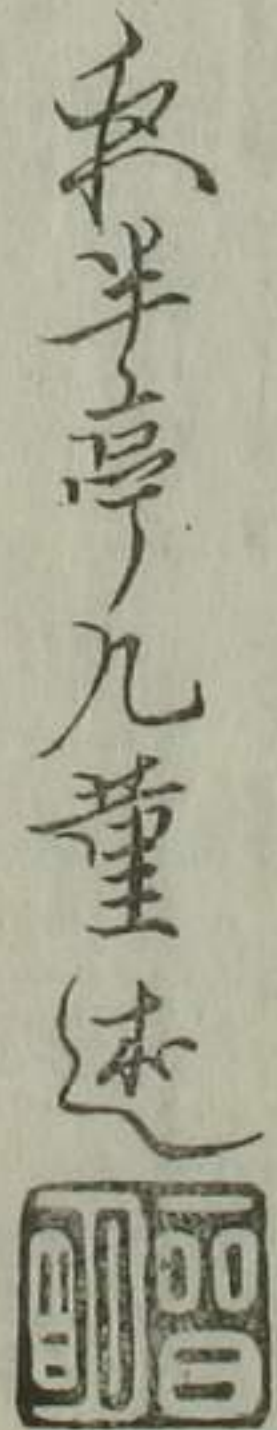 夜半亭几董述